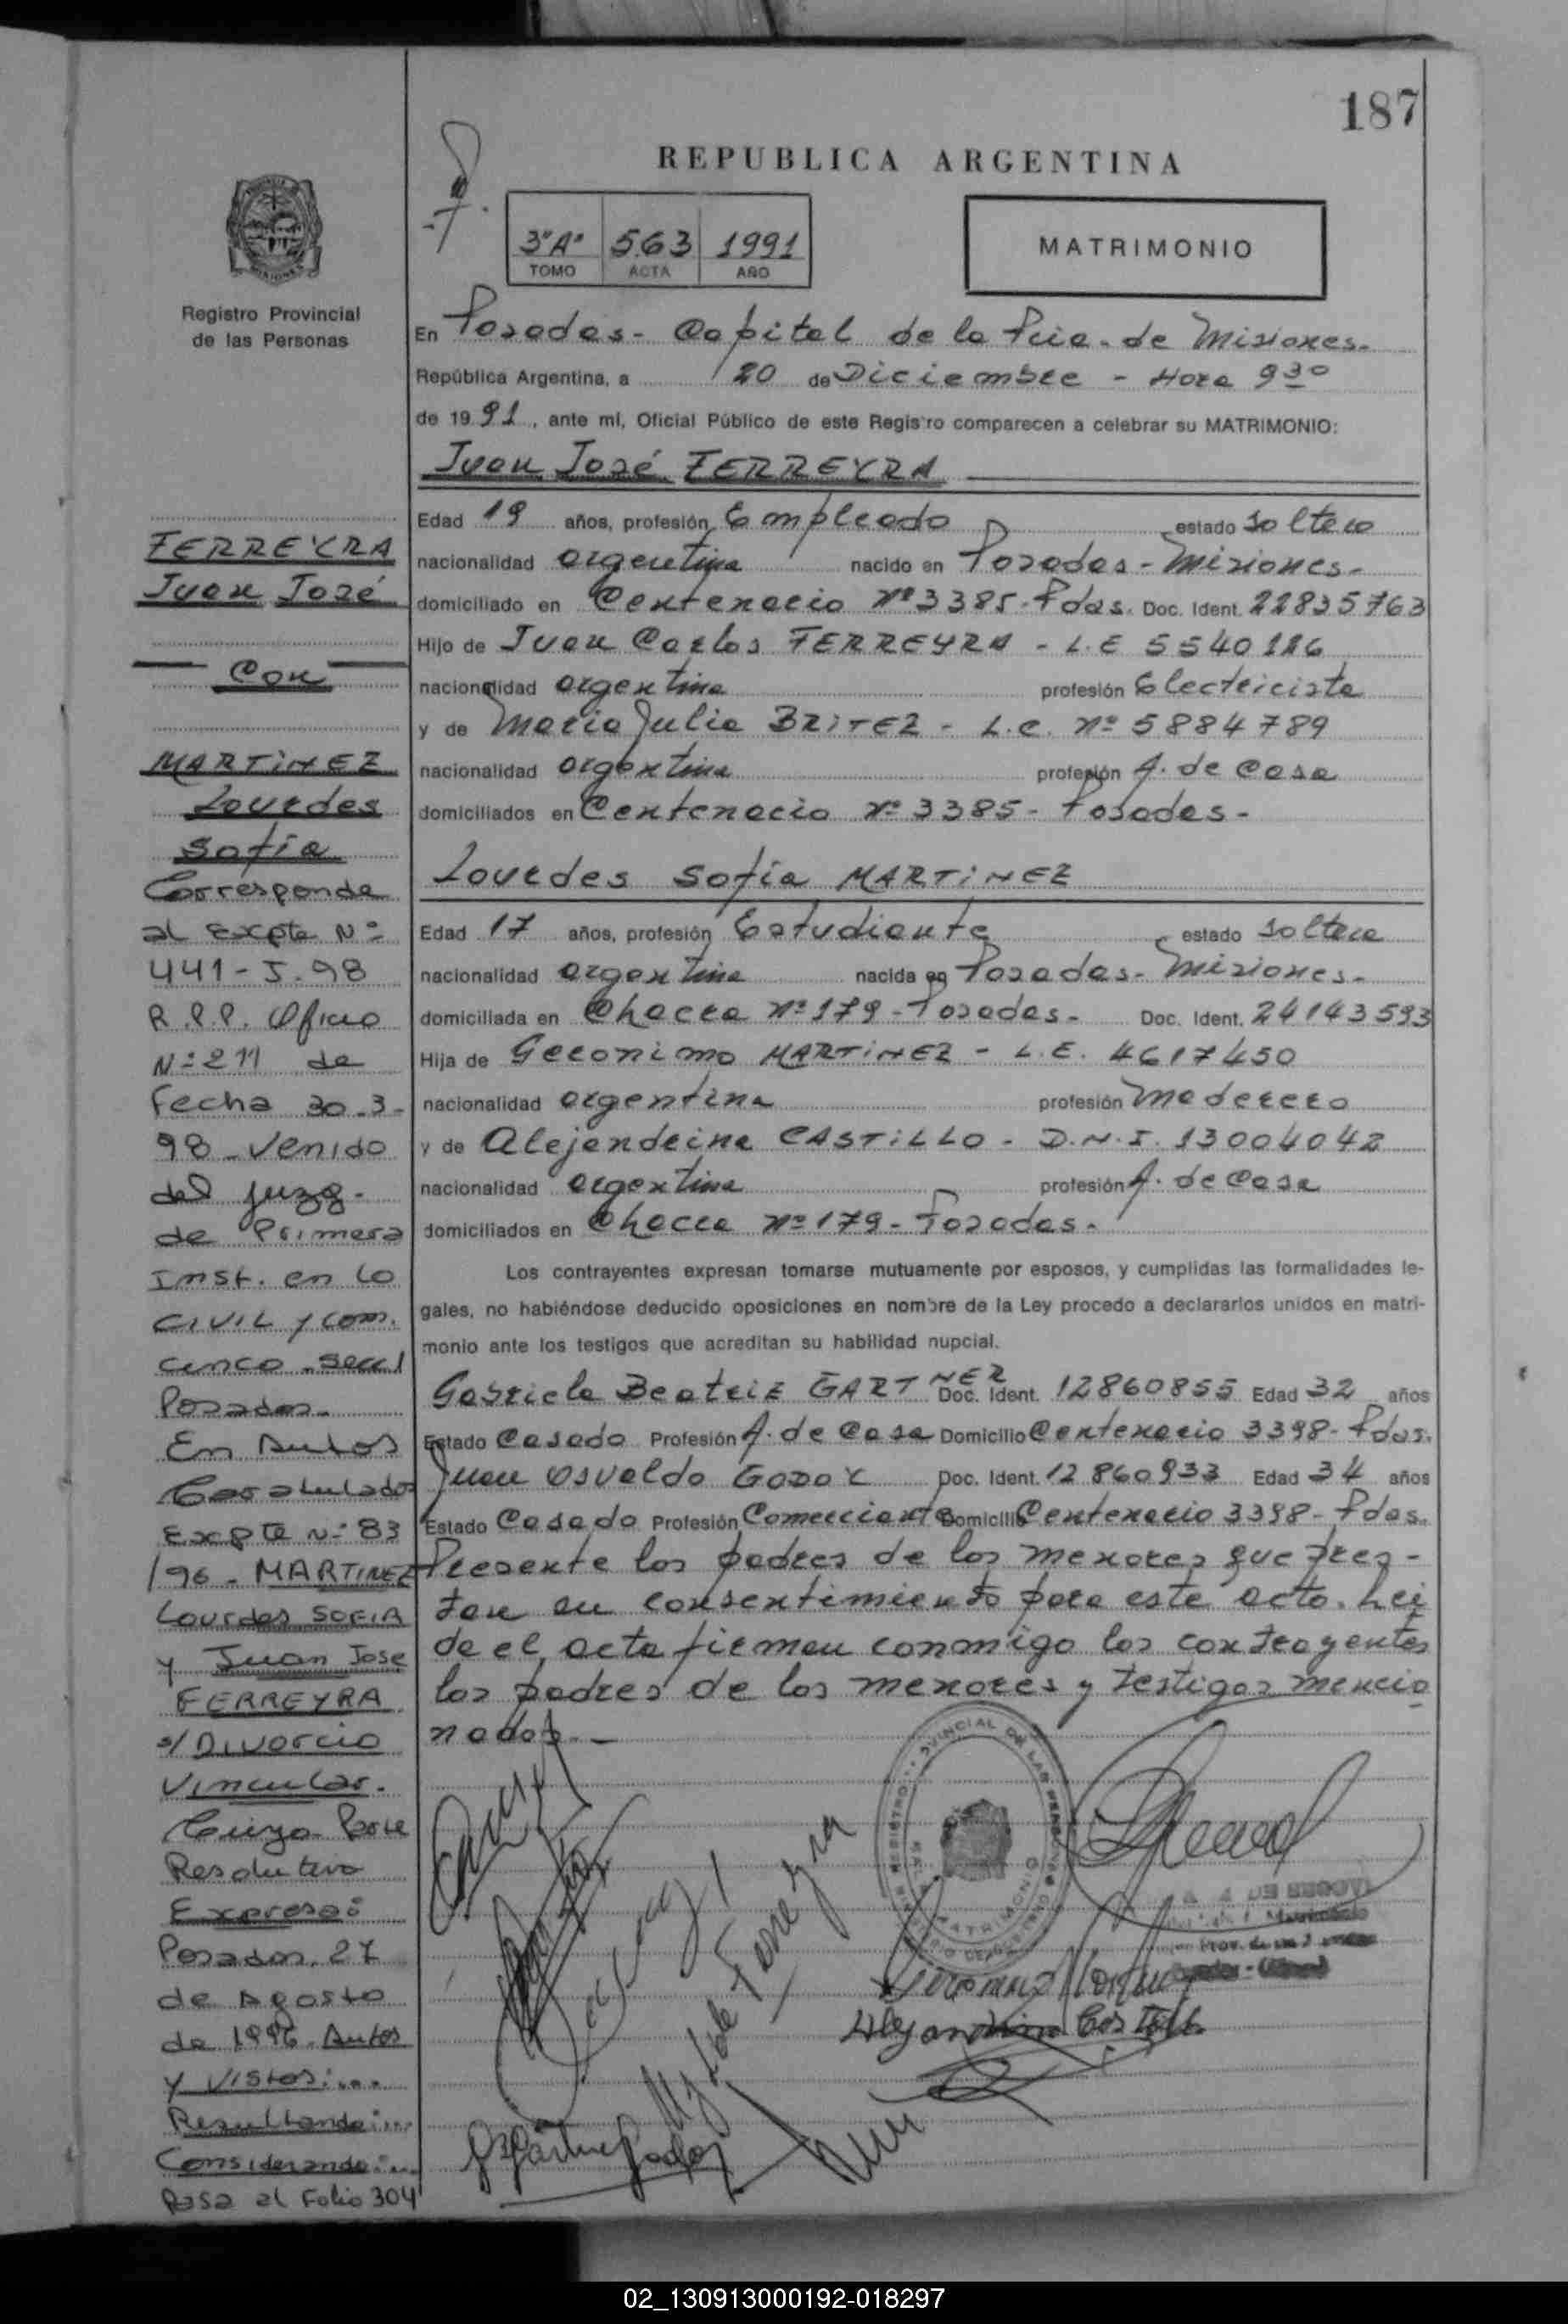 187
REPUBLICA ARGENTINA
3"A" 563 1991
TOMO ACTA AÑO
MATRIMONIO
Registro Provincial
de las Personas
En Posadas - Capital de la Pcia. de Misiones.
República Argentina, a 20 de Diciembre - Hora 9 30
de 19 91, ante mí, Oficial Público de este Registro comparecen a celebrar su MATRIMONIO:
Juan José FERREYRA
Edad 19 años, profesión Empleado estado soltero
nacionalidad argentina nacido en Posadas - Misiones -
domiciliado en Centenario Nº 3385 - Pdas. Doc. Ident. 22835763
Hijo de Juan Carlos FERREYRA - L.E 5540116
nacionalidad argentina profesión Electricista
y de Maria Julia BRITEZ - L.C. Nº 5884789
nacionalidad argentina profesión A. de Casa
domiciliados en Centenario Nº 3385 - Posadas -
Lourdes Sofía MARTINEZ
Edad 17 años, profesión Estudiante estado soltera
nacionalidad argentina nacida en Posadas - Misiones -
domiciliada en Chacra Nº 179 - Posadas - Doc. Ident. 24143593
Hija de Geronimo MARTINEZ - L.E. 4617450
nacionalidad argentina profesión Maderero
y de Alejandrina CASTILLO - D.N.I. 13004042
nacionalidad argentina profesión A. de Casa
domiciliados en Chacra Nº 179 - Posadas -
Los contrayentes expresan tomarse mutuamente por esposos, y cumplidas las formalidades le-
gales, no habiéndose deducido oposiciones en nombre de la Ley procedo a declararlos unidos en matri-
monio ante los testigos que acreditan su habilidad nupcial.
Gabriela Beatriz GARTNER Doc. Ident. 12860855 Edad 32 años
Estado Casado Profesión A. de Casa Domicilio Centenario 3398 - Pdas.
Juan Osvaldo GODOY Doc. Ident. 12860933 Edad 34 años
Estado Casado Profesión Comerciante Domicilio Centenario 3398 - Pdas.
Presente los padres de los menores que pres-
tan su consentimiento para este acto. Lei
da el acta firman conmigo los contrayentes
los padres de los menores y testigos mencio
nados. -
FERREYRA
Juan José
Con
MARTINEZ
Lourdes
Sofía
Corresponde
al Expte Nº
441-J-98
R.P.P. Oficio
Nº 211 de
fecha 30-3-
98 - venido
del juzg.
de Primera
Inst. en lo
CIVIL y com.
cinco - Sec 1
Posadas.
En Autos
Caratulados
Expte Nº 83
/96 - MARTINEZ
Lourdes SOFIA
y Juan Jose
FERREYRA
s/ Divorcio
Vincular.
Cuya Parte
Resolutiva
Expresa:
Posadas, 27
de Agosto
de 1996. Autos
y Vistos:...
Resultando:...
Considerando:...
Pasa al Folio 304
MATRIMONIO
Alejandrina Castillo
02_130913000192-018297